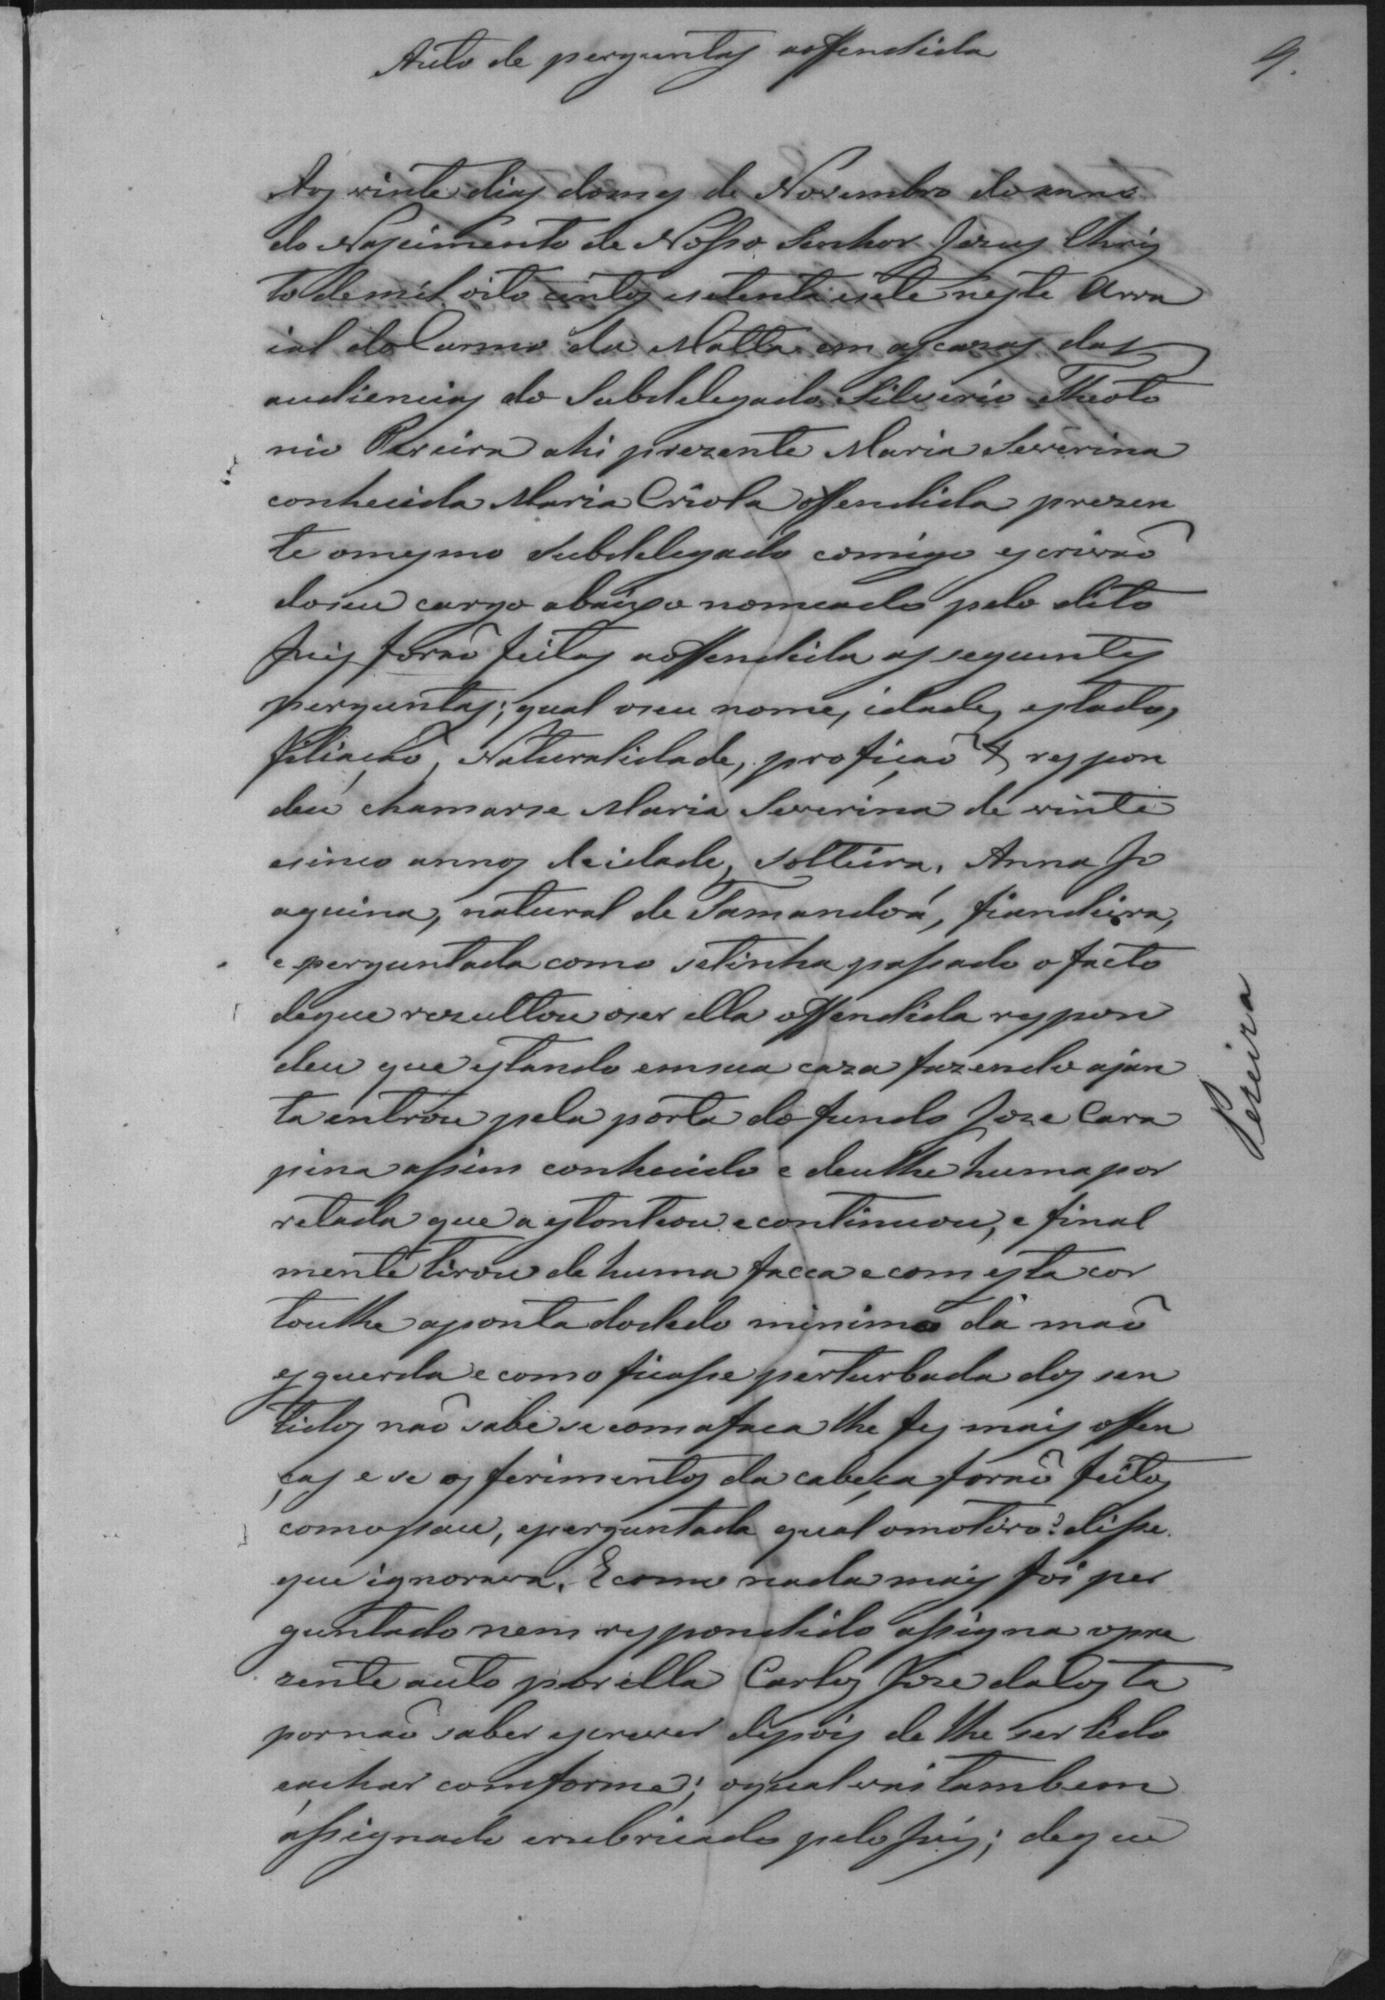 Auto de perguntas aoffendida
9.
Aos vinte dias domes de Novembro doanno
do Nascimento de Nosso Senhor Jezus Chris
to demil oito centos esetenta esete neste Arra
ial do Carmo da Matta em as cazas das
audiencias do Subdelegado Silverio Theoto
nio Pereira ahi prezente Maria Severina
conhecida Maria Criola offendida prezen
te omesmo Subdelegado comigo escrivaõ
doseu cargo abaixo nomeado pelo dito
Juis foraõ feitas aoffendida as seguintes
perguntas; qual oseu nome, idade, estado,
filiacaõ, Naturalidade, proficaõ & respon
deu chamarse Maria Severina de vinte
esinco annos de idade, solteira, Anna Jo
aquina, natural de Tamandoá, fiandeira,
e perguntada como setinha passado o facto
deque rezultou oser ella offendida respon
deu que estando emsua caza fazendo ajan
ta entrou pela porta do fundo Joze Cara
pina assim conhecido e deulhe huma por
retada que a estonteou e continuou, e final
mente tirou de huma facca e com esta cor
toulhe aponta dodedo minimo da maõ
esquerda e como ficasse perturbada dos sen
tidos naõ sabe se comafaca lhe fes mais offen
ças e se os ferimentos da cabeça foraõ feitos
comopau, eperguntada qual omotivo? disse
que ignorava. E como nada mais foi per
guntado nem respondido assigna opre
zente auto por ella Carlos Joze daCosta
pornaõ saber escrever depois de lhe ser lido
eachar comforme; oqual vai tambem
assignado erubricado pelo Juis; deque
Pereira